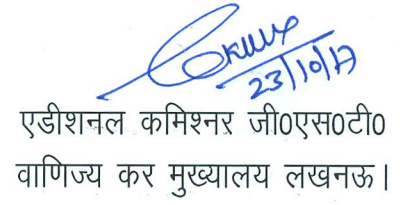 23/10/17
एडीशनल कमिश्नर जी0एस0टी0
वाणिज्य कर मुख्यालय लखनऊ।